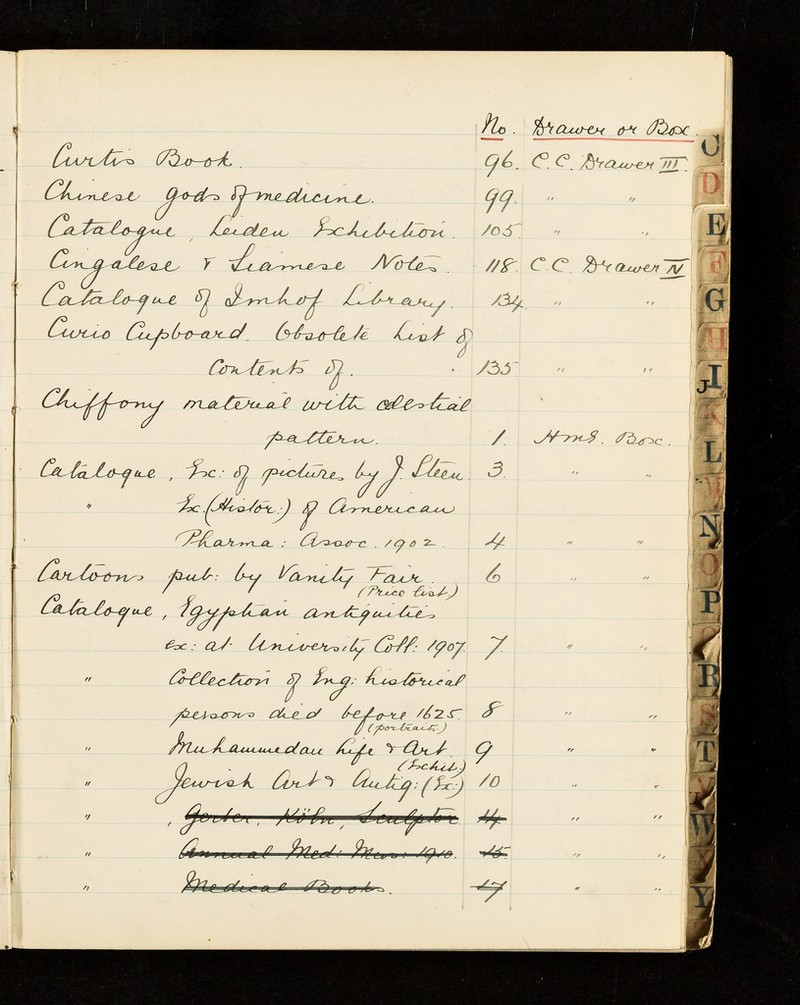 No. Drawer or Box.
Curtis Book. 96. C.C. Drawer III.
Chinese gods of medicine. 99. " "
Catalogue, Leiden Exhibition. 105. " "
Cingalese & Siamese Notes. 118. C.C. Drawer IV
Catalogue of Imhof Library. 134. " "
Curio Cupboard. Obsolete List of
Contents of. 135 " "
Chiffony material with celestial
pattern. 1. HMS. Box.
Catalogue, Ex: of pictures by J. Steen. 3. " "
" Ex.(Histor:) of American
Pharma: Assoc. 1902. 4 " "
Cartoons pub: by Vanity Fair. 6 " "
(Price list)
Catalogue, Egyptian antiquities
ex: at University Coll: 1907. 7. " "
" Collection of Eng: historical
persons died before 1625. 8 " "
(portraits)
" Muhammedan Life & Art. 9 " "
(Exhib:)
" Jewish Art & Antiq: (Ex:) 10 " "
" , Köln, Sculptor 14 " "
" Annual Med: Mus: 1910. 15 " "
" Medical Books. 17 " "
C
D
E
F
G
H
I J
K
L
M
N
O
P
R
S
T
W
X
Y